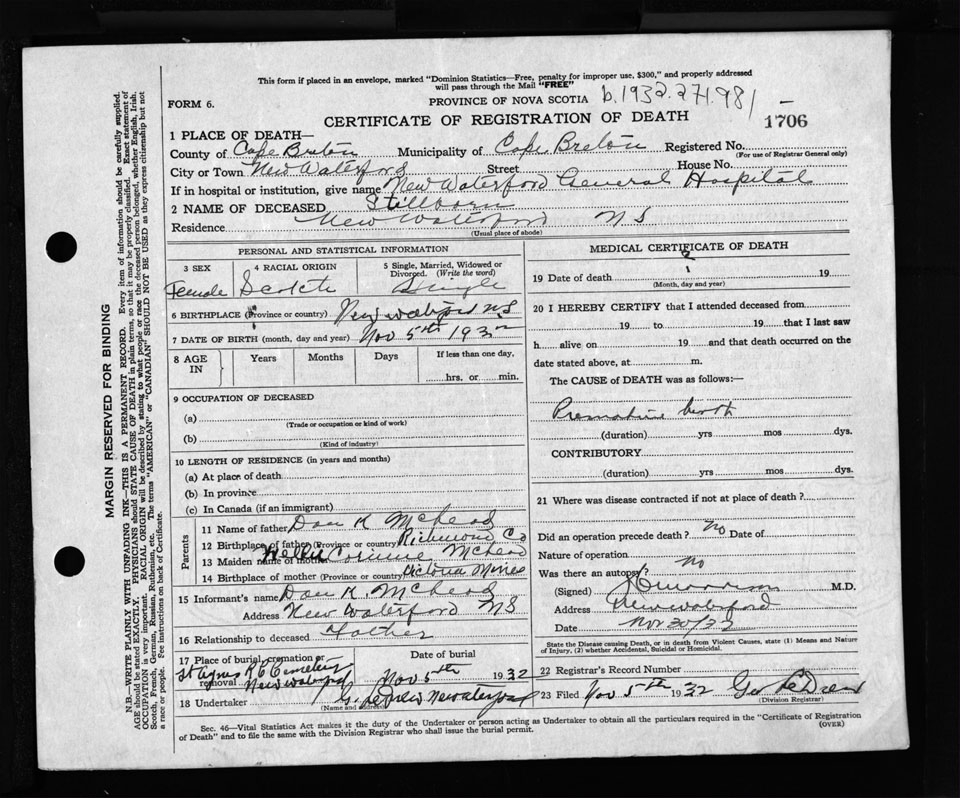 This form if placed in an envelope, marked "Dominion Statistics—Free, penalty for improper use, $300," and properly addressed
will pass through the Mail "FREE"
FORM 6.
PROVINCE OF NOVA SCOTIA
b.1932.271.981
CERTIFICATE OF REGISTRATION OF DEATH
1706
1 PLACE OF DEATH—
County of Cape Breton Municipality of Cape Breton Registered No.
(For use of Registrar General only)
City or Town New Waterford Street House No.
If in hospital or institution, give name New Waterford General Hospital
2 NAME OF DECEASED Stillborn
Residence New Waterford N S
(Usual place of abode)
PERSONAL AND STATISTICAL INFORMATION
3 SEX Female
4 RACIAL ORIGIN Scotch
5 Single, Married, Widowed or Divorced. (Write the word) Single
6 BIRTHPLACE (Province or country) New Waterford N.S
7 DATE OF BIRTH (month, day and year) Nov 5th 1932
8 AGE IN Years Months Days If less than one day, hrs. or min.
9 OCCUPATION OF DECEASED
(a)
(Trade or occupation or kind of work)
(b)
(Kind of industry)
10 LENGTH OF RESIDENCE (in years and months)
(a) At place of death
(b) In province
(c) In Canada (if an immigrant)
Parents
11 Name of father Dan K McLeod
12 Birthplace of father (Province or country) Richmond Co
13 Maiden name of mother Corinne McLeod
14 Birthplace of mother (Province or country) Victoria Mines
15 Informant's name Dan K. McLeod
Address New Waterford N S
16 Relationship to deceased Father
17 Place of burial cremation or removal St Agnes R C Cemetery New Waterford
Date of burial Nov 5th 1932
18 Undertaker New Waterford
(Name and address)
MEDICAL CERTIFICATE OF DEATH
19 Date of death 19
(Month, day and year)
20 I HEREBY CERTIFY that I attended deceased from
19 to 19 that I last saw
h alive on 19 and that death occurred on the
date stated above, at m.
The CAUSE of DEATH was as follows:—
Premature birth
(duration) yrs mos dys.
CONTRIBUTORY
(duration) yrs mos dys.
21 Where was disease contracted if not at place of death?
Did an operation precede death? no Date of
Nature of operation
Was there an autopsy? no
(Signed) M.D.
Address New Waterford
Date Nov 30/32
State the Disease causing Death, or in death from Violent Causes, state (1) Means and Nature
of Injury, (2) whether Accidental, Suicidal or Homicidal.
22 Registrar's Record Number
23 Filed Nov 5th 1932
(Division Registrar)
Sec. 46—Vital Statistics Act makes it the duty of the Undertaker or person acting as Undertaker to obtain all the particulars required in the "Certificate of Registration
of Death" and to file the same with the Division Registrar who shall issue the burial permit.
(OVER)
MARGIN RESERVED FOR BINDING
N.B.—WRITE PLAINLY WITH UNFADING INK—THIS IS A PERMANENT RECORD. Every item of information should be carefully supplied.
AGE should be stated EXACTLY. PHYSICIANS should STATE CAUSE OF DEATH in plain terms, so that it may be properly classified. Exact statement of
OCCUPATION is very important. RACIAL ORIGIN will be described by stating to what people or race the deceased person belonged, whether English, Irish,
Scotch, French, German, Russian, Ruthenian, etc. The terms "AMERICAN" or "CANADIAN" SHOULD NOT BE USED as they express citizenship but not
a race or people. Fee instructions on back of Certificate.